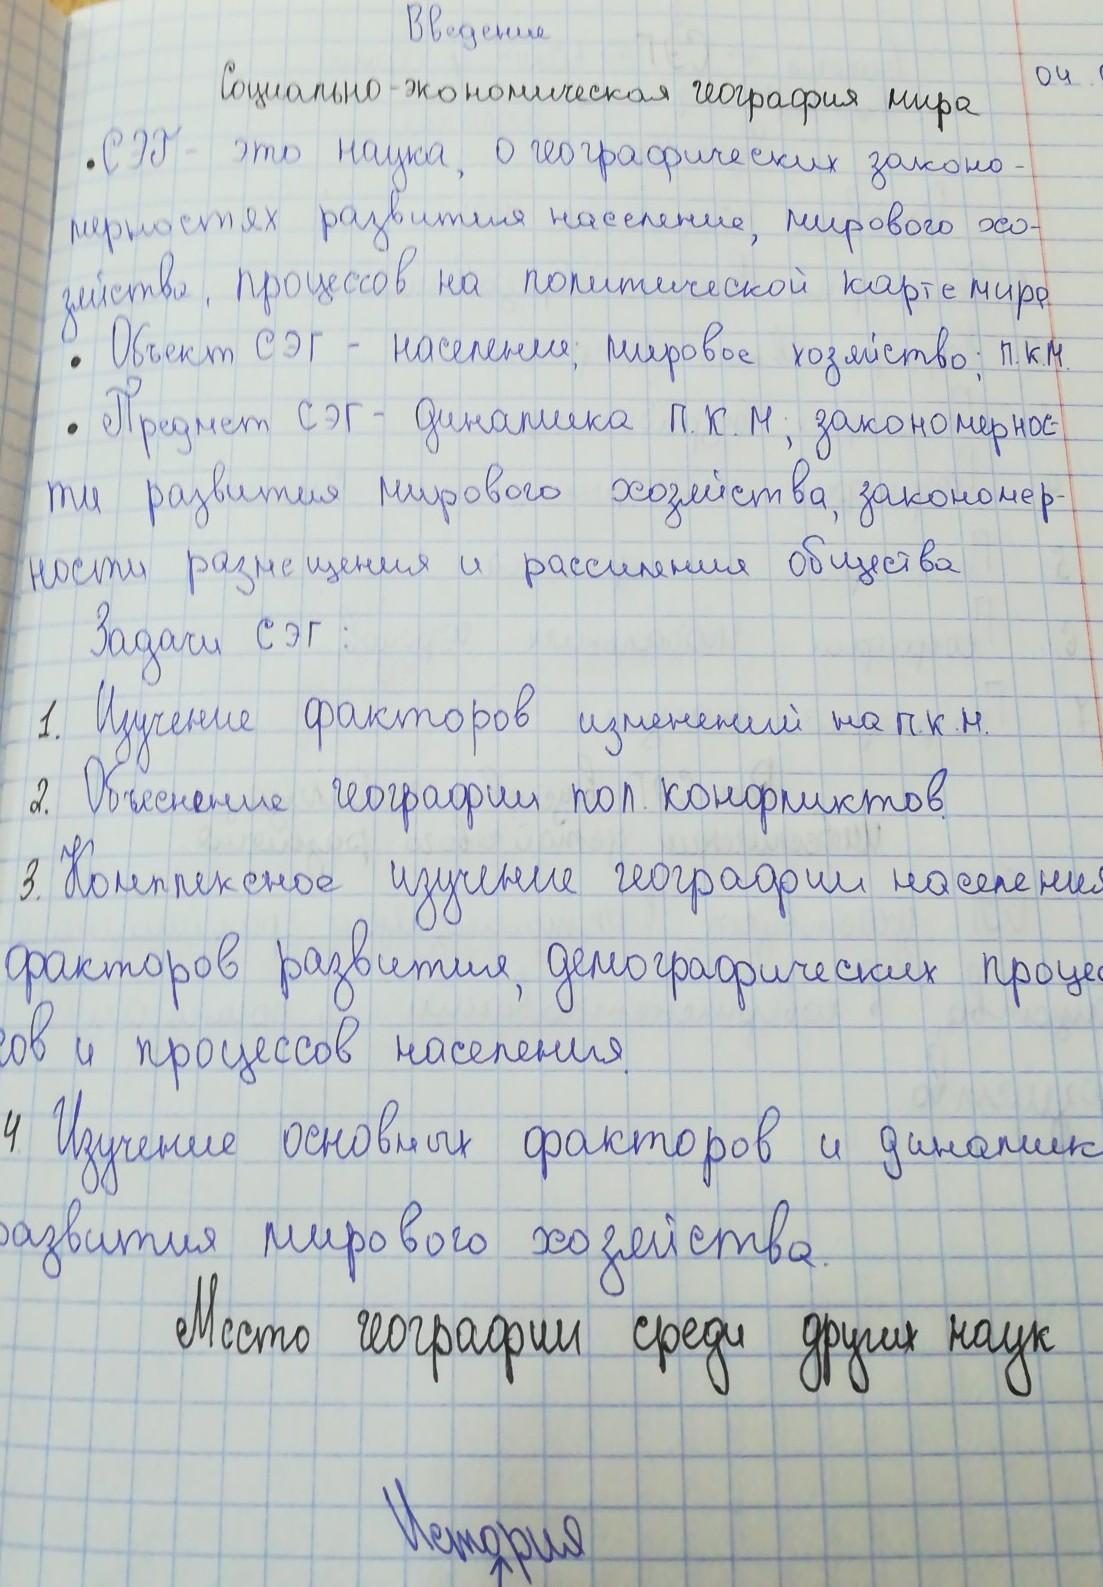 Введение
04.
Социально-экономическая география мира
• СЭГ - это наука, о географических законо-
мерностях развития население, мирового хо-
зяйства, процессов на политической карте мира
• Объект СЭГ - население; мировое хозяйство; п.к.м.
• Предмет СЭГ - динамика П.К.М; закономернос-
ти развития мирового хозяйства, закономер-
ности размещения и расселения общества
Задачи СЭГ:
1. Изучение факторов изменений на п.к.м.
2. Объеснение географии пол. конфликтов.
3. Комплексное изучение географии населения
факторов развития, демографических процес
сов и процессов населения.
4. Изучение основных факторов и динамик
развития мирового хозяйства.
Место географии среди других наук
История